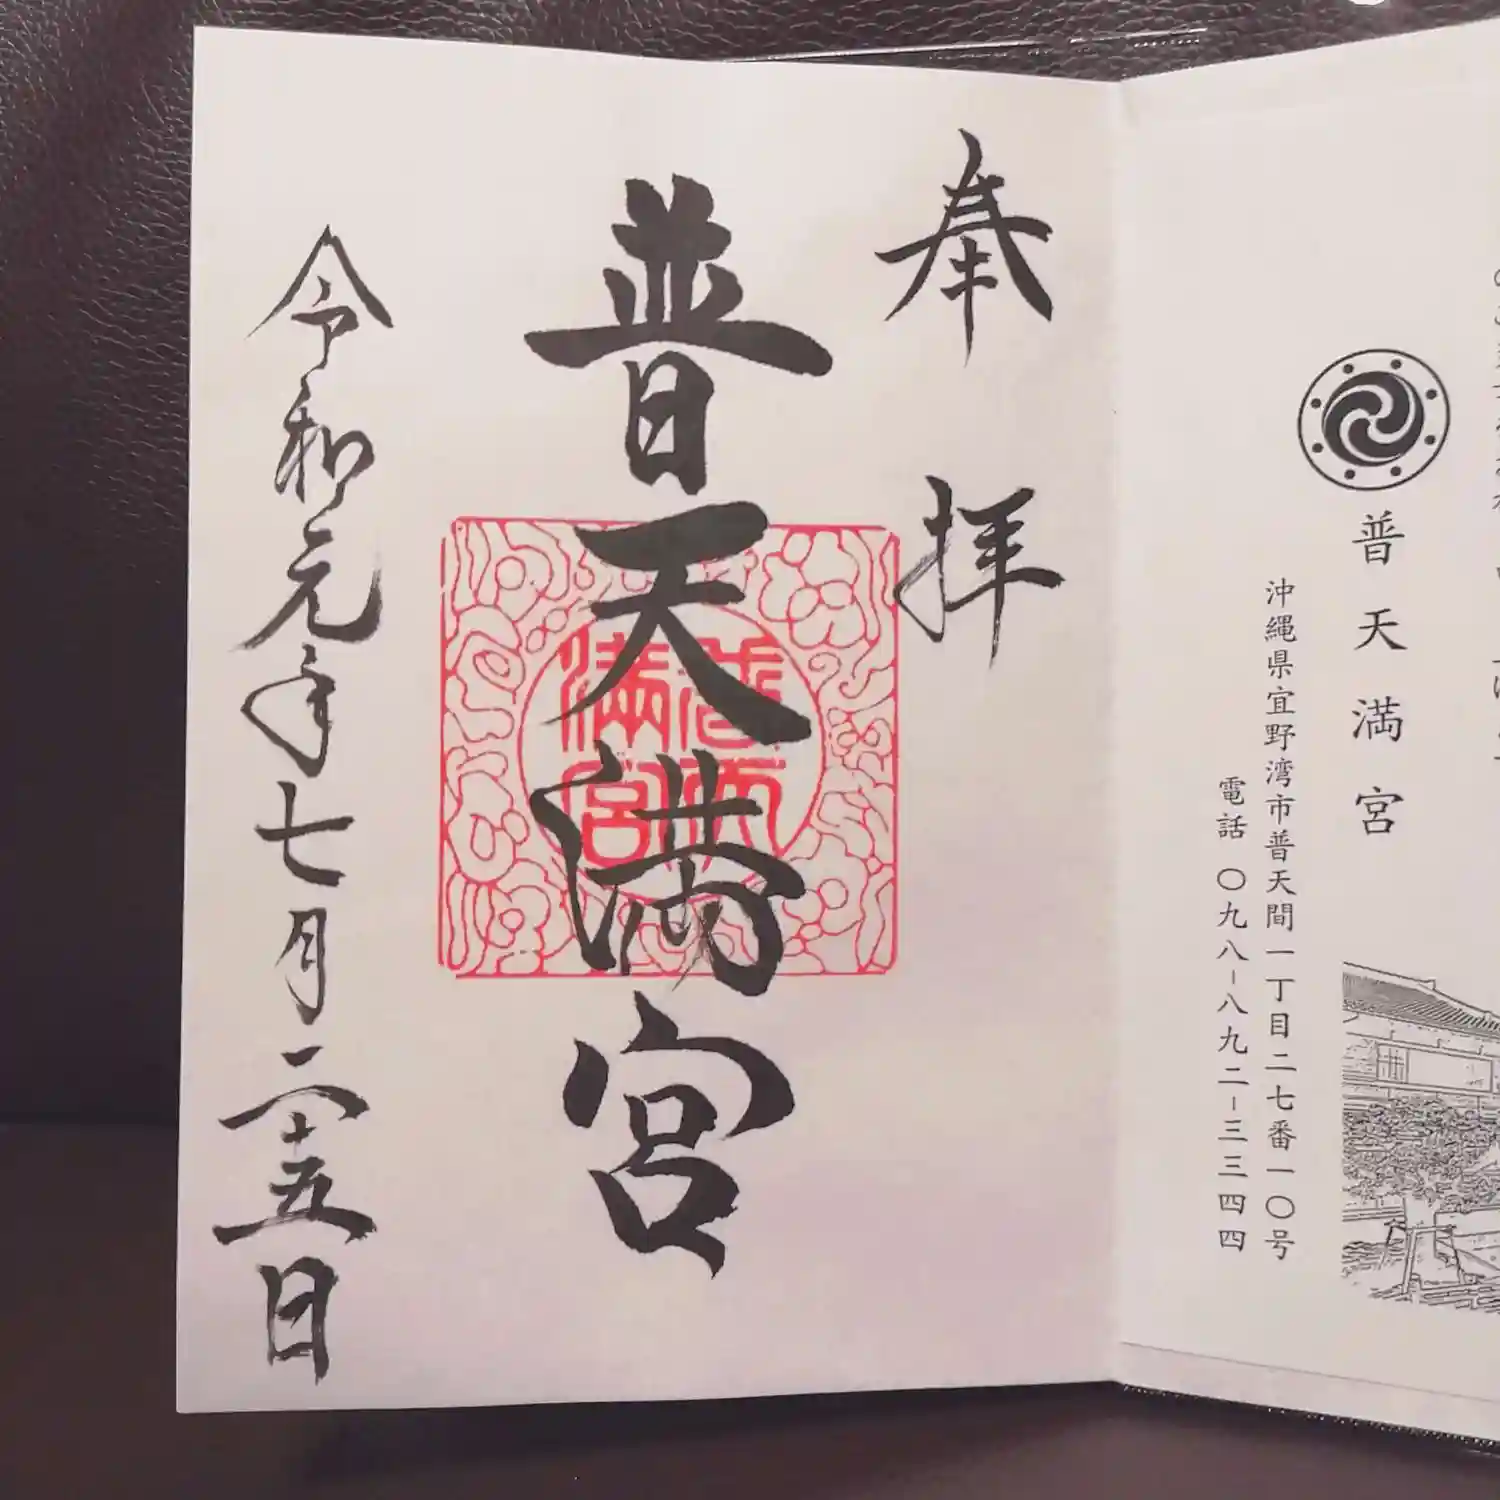 普天満宮
沖縄県宜野湾市普天間一丁目二七番一〇号
電話 〇九八-八九二-三三四四
奉拝
普天満宮
普天満宮
令和元年七月二十五日